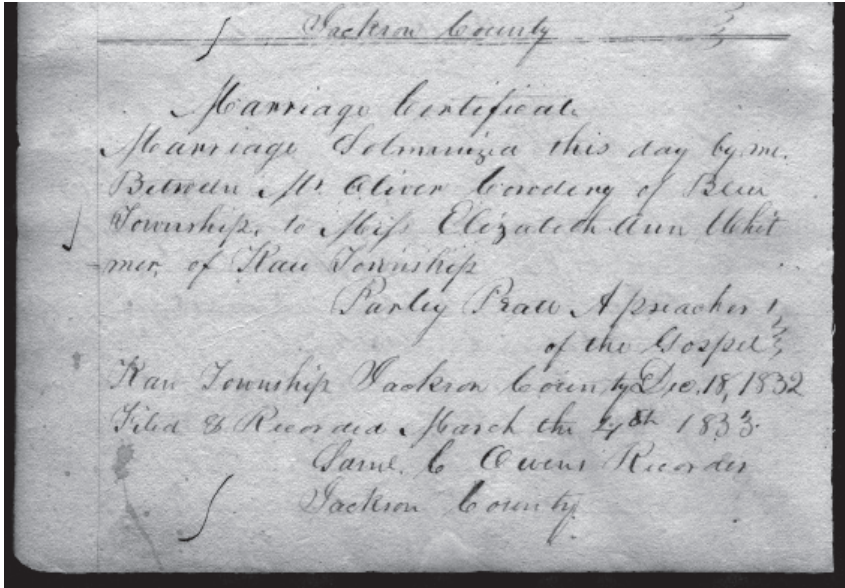 Jackson County
Marriage Certificate
Marriage Solmnized this day by me.
Between Mr. Oliver Cowdery of Blue
Township, to Miss Elizabeth Ann Whit
mer, of Kaw Township
Parley Pratt A preacher
of the Gospel
Kaw Township Jackson County Dec. 18, 1832
Filed & Recorded March the 1833
Saml. C Owens Recorder
Jackson County